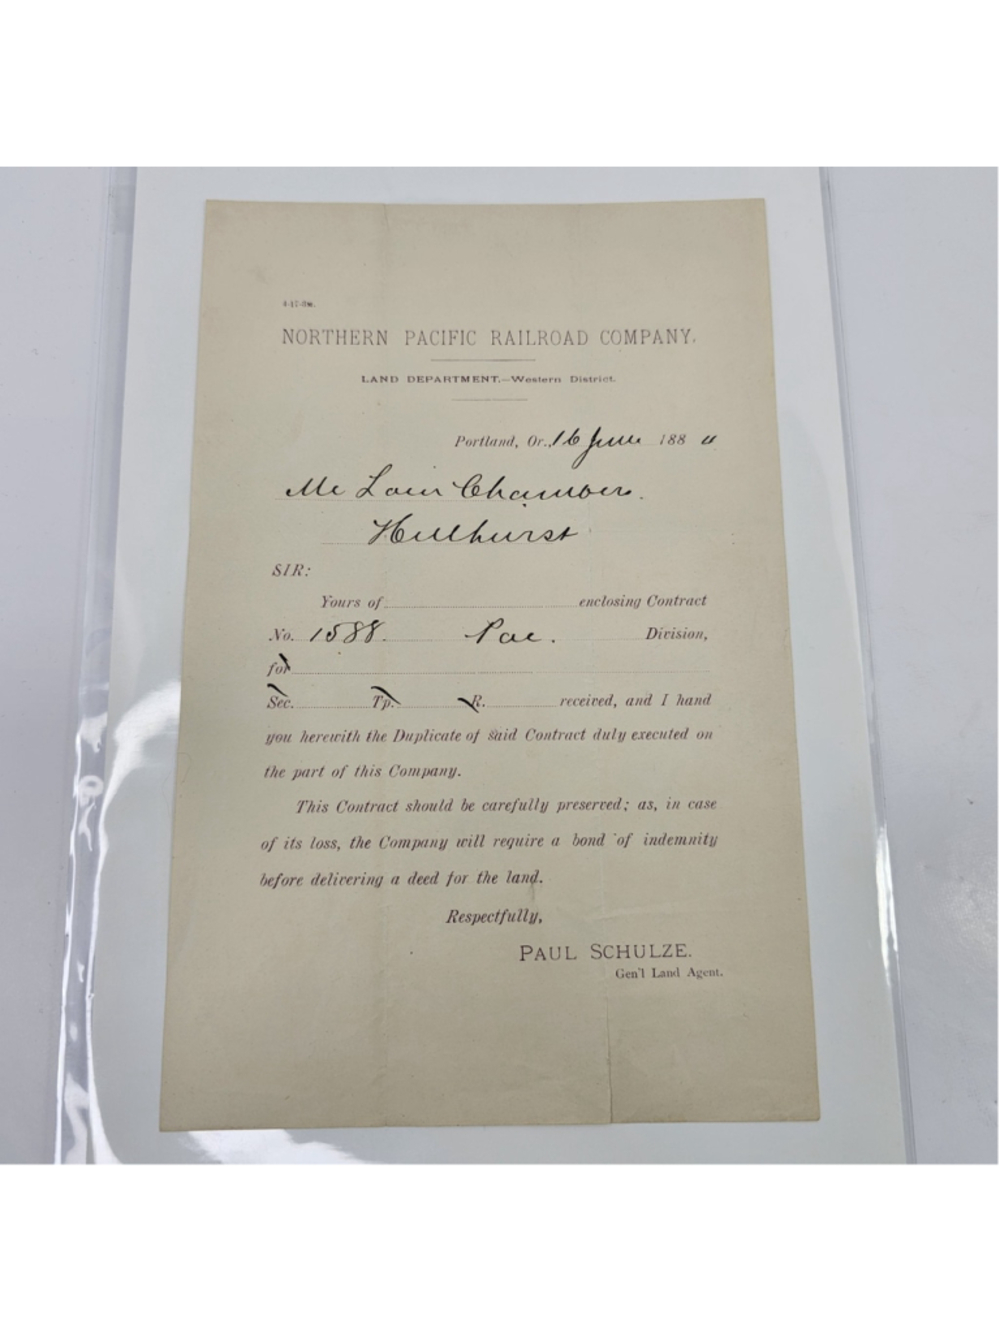 4-17-3w.
NORTHERN PACIFIC RAILROAD COMPANY.
LAND DEPARTMENT.—Western District.
Portland, Or., 16 June 188
Chambers.
Hillhurst
SIR:
Yours of enclosing Contract
No. 1588. Pac. Division,
for
Sec. Tp. R. received, and I hand
you herewith the Duplicate of said Contract duly executed on
the part of this Company.
This Contract should be carefully preserved; as, in case
of its loss, the Company will require a bond of indemnity
before delivering a deed for the land.
Respectfully,
PAUL SCHULZE.
Gen'l Land Agent.